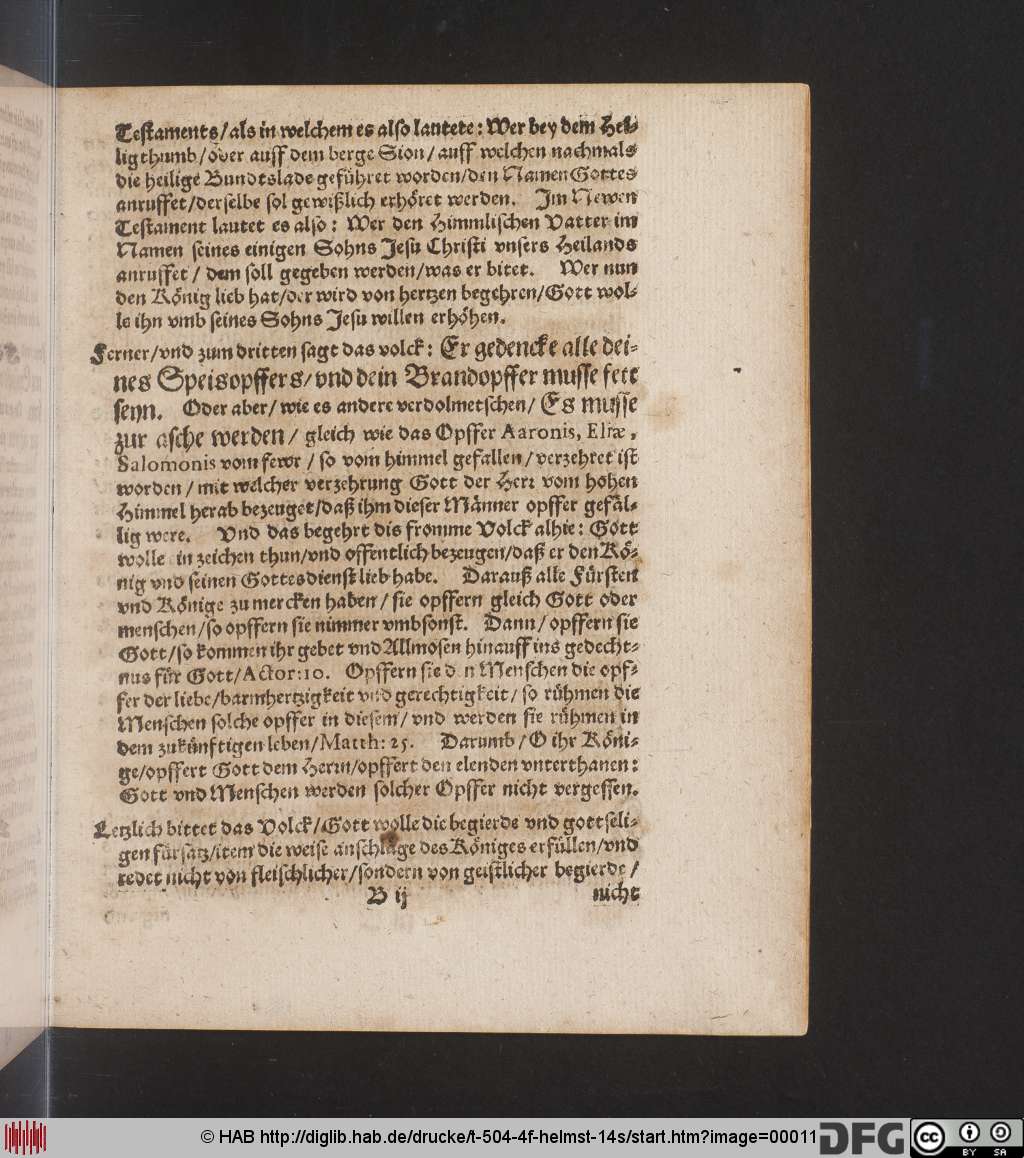 Testaments/als in welchem es also lautete: Wer bey dem Hei-
ligthumb/oder auff dem berge Sion/auff welchen nachmals
die heilige Bundtslade geführet worden/den Namen Gottes
anruffet/derselbe sol gewißlich erhöret werden. Im Newen
Testament lautet es also: Wer den Himmlischen Vatter im
Namen seines einigen Sohns Jesu Christi vnsers Heilands
anruffet/ dem soll gegeben werden/was er bitet. Wer nun
den König lieb hat/der wird von hertzen begehren/Gott wol-
le ihn vmb seines Sohns Jesu willen erhöhen.
Ferner/vnd zum dritten sagt das volck: Er gedencke alle dei-
nes Speisopffers/vnd dein Brandopffer musse fett
seyn. Oder aber/ wie es andere verdolmetschen/ Es musse
zur asche werden/ gleich wie das Opffer Aaronis, Eliæ,
Salomonis vom fewr / so vom himmel gefallen/verzehret ist
worden / mit welcher verzehrung Gott der Herr vom hohen
Himmel herab bezeuget/daß ihm dieser Männer opffer gefäl-
lig were. Vnd das begehrt dis fromme Volck alhie: Gott
wolle ein zeichen thun/vnd offentlich bezeugen/daß er den Kö-
nig vnd seinen Gottesdienst lieb habe. Darauß alle Fürsten
vnd Könige zu mercken haben/ sie opffern gleich Gott oder
menschen/so opffern sie nimmer vmbsonst. Dann/ opffern sie
Gott/so kommen ihr gebet vnd Allmosen hinauff ins gedecht-
nus für Gott/Actor: 10. Opffern sie den Menschen die opf-
fer der liebe/barmhertzigkeit vnd gerechtigkeit/ so rühmen die
Menschen solche opffer in diesem/ vnd werden sie rühmen in
dem zukünftigen leben/Matth: 25. Darumb/ O ihr Köni-
ge/opffert Gott dem Herrn/opffert den elenden vnterthanen:
Gott vnd Menschen werden solcher Opffer nicht vergessen.
Letzlich bittet das Volck/Gott wolle die begierde vnd gottseli-
gen fürsatz/item die weise anschläge des Königes erfüllen/vnd
redet nicht von fleischlicher/sondern von geistlicher begierde /
B ij nicht
© HAB http://diglib.hab.de/drucke/t-504-4f-helmst-14s/start.htm?image=00011 DFG cc BY SA